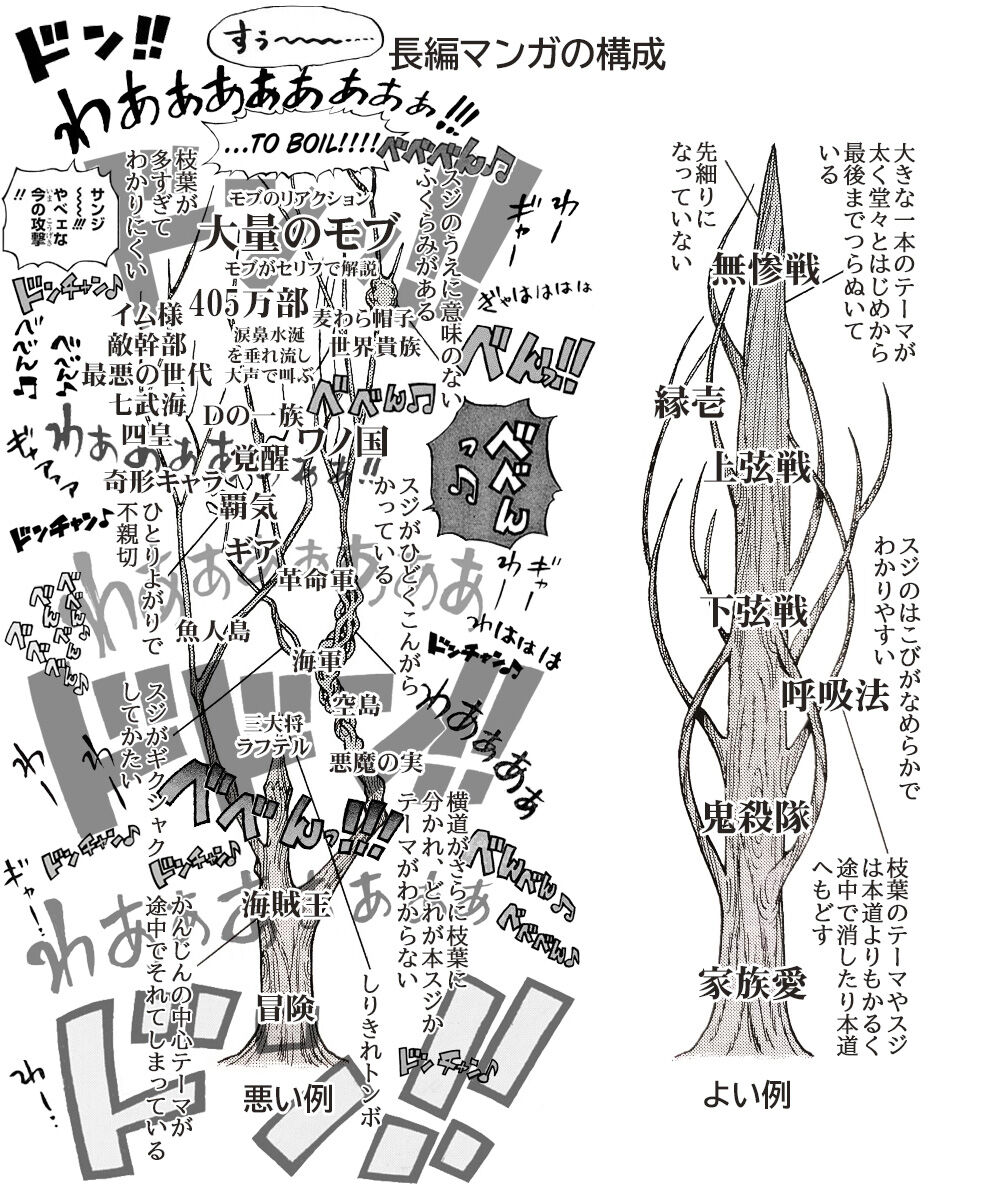 長編マンガの構成
ドン!!
すぅ〜〜〜……
わあぁあぁあぁぁぁ!!!
…TO BOIL!!!!
べべべん♫
枝葉が
多すぎて
わかりにくい
サンジ
〜〜!!!
やべェな
今の攻撃
いま こうげき
!!
モブのリアクション
大量のモブ
モブがセリフで解説
スジのうえに意味のない
ふくらみがある
わー
ぎゃー
ぎゃはははは
ドンチャン♪
405万部
イム様
敵幹部
最悪の世代
七武海
四皇
奇形キャラ
涙鼻水涎
を垂れ流し
大声で叫ぶ
麦わら帽子
世界貴族
べん!!
べべん♫
べべん
っ♫
Dの一族
ワノ国
覚醒
覇気
ギア
革命軍
ギャアアァ
ドンチャン♪
ひとりよがりで
不親切
スジがひどくこんがら
かっている
わー
ギャー
わははは
ドンチャン♫
魚人島
海軍
空島
三大将
ラフテル
悪魔の実
スジがギクシャク
してかたい
わあぁあぁ
べべんっ!!!
ドン!!
横道がさらに枝葉に
分かれ、どれが本スジか
テーマがわからない
ドンチャン♪
ドンチャン♪
べんべん♪
べべべん♪
ギャー…
海賊王
かんじんの中心テーマが
途中でそれてしまっている
しりきれトンボ
冒険
ドンチャン♫
わー…
ドン!!
悪い例
大きな一本のテーマが
太く堂々とはじめから
最後までつらぬいて
いる
先細りに
なっていない
無惨戦
縁壱
上弦戦
スジのはこびがなめらかで
わかりやすい
下弦戦
呼吸法
鬼殺隊
枝葉のテーマやスジ
は本道よりもかるく
途中で消したり本道
へもどす
家族愛
よい例